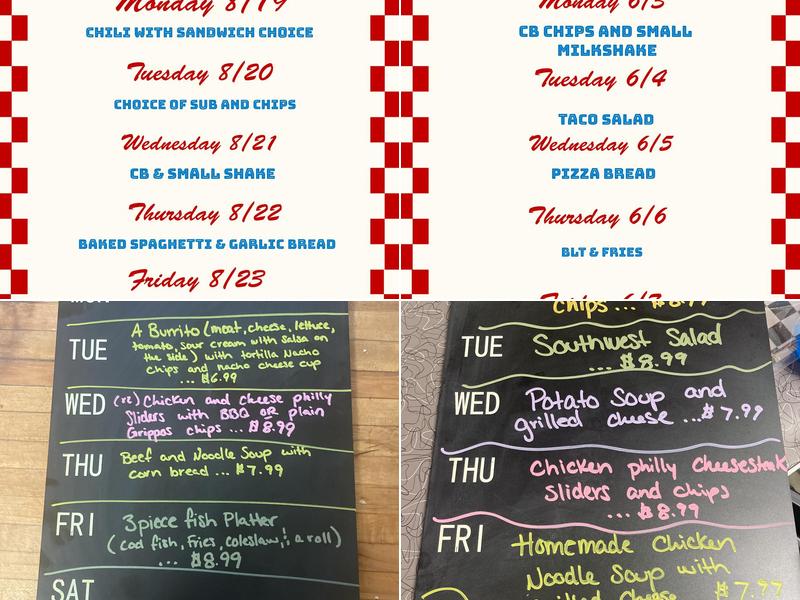 Monday 8/19
CHILI WITH SANDWICH CHOICE
Tuesday 8/20
CHOICE OF SUB AND CHIPS
Wednesday 8/21
CB & SMALL SHAKE
Thursday 8/22
BAKED SPAGHETTI & GARLIC BREAD
Friday 8/23
Monday 6/3
CB CHIPS AND SMALL
MILKSHAKE
Tuesday 6/4
TACO SALAD
Wednesday 6/5
PIZZA BREAD
Thursday 6/6
BLT & FRIES
TUE
A Burrito (meat, cheese, lettuce,
tomato, sour cream with salsa on
the side) with tortilla Nacho
chips and nacho cheese cup
... $6.99
WED
(re) Chicken and cheese philly
Sliders with BBQ OR plain
Grippos chips ... $8.99
THU
Beef and Noodle Soup with
corn bread ... $7.99
FRI
3 piece fish Platter
(cod fish, fries, coleslaw, a roll)
... $8.99
SAT
chips ... $8.99
TUE
Southwest Salad
... $8.99
WED
Potato Soup and
grilled cheese ... $7.99
THU
Chicken philly Cheesesteak
Sliders and chips
... $8.99
FRI
Homemade Chicken
Noodle Soup with
grilled cheese $7.99